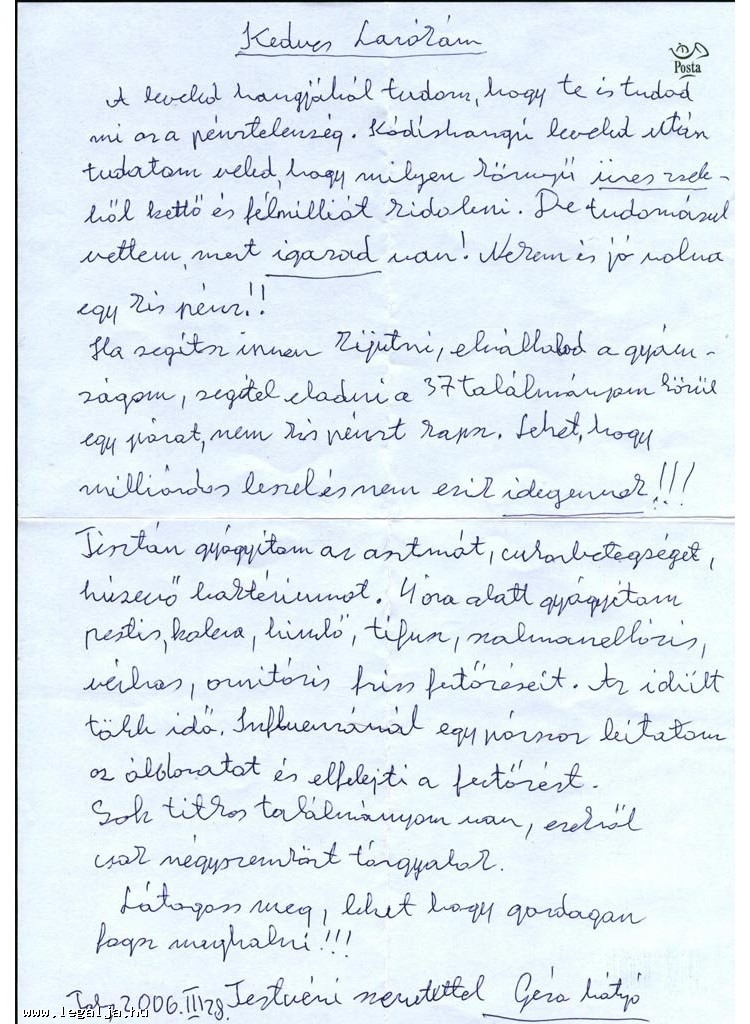 Kedves Lacókám
Posta
A leveled hangjából tudom, hogy te is tudod
mi az a pénztelenség. Kódishangú leveled után
tudatom veled, hogy milyen könnyű üres zseb-
ből kettő és félmilliót kidobni. De tudomásul
vettem, mert igazad van! Nekem is jó volna
egy kis pénz!!
Ha segítsz innen kijutni, elvállalod a gyám-
ságom, segítel eladni a 37 találmányom közül
egy párat, nem kis pénzt kapsz. Lehet, hogy
milliárdos leszel és nem ezik idegennek!!!
Tisztán gyógyítom az asztmát, cukorbetegséget,
húsevő baktériumot. 4 óra alatt gyógyítom
pestis, kolera, himlő, tífusz, szalmanellózis,
vérhas, ornitózis friss fertőzéseit. Az idült
több idő. Influenzánál egy párszor leitatom
az áldozatot és elfelejti a fertőzést.
Sok titkos találmányom van, ezekről
csak négyszemközt tárgyalok.
Látogass meg, lehet hogy gazdagan
fogsz meghalni!!!
2006. III 28. Testvéri szeretettel Géza bátyó
www.legalja.hu